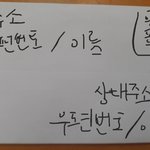 주소
편번호 / 이름
상대주소
우편번호 /